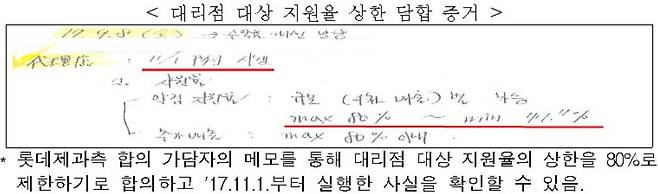 < 대리점 대상 지원율 상한 담합 증거 >
17. 9.8 (금) →
代理店 : 11/1 부터 시행
2. 지원율
지원율 : 규모 ( 매출) 별 차등
max 80 % ~ min 41.7%
추가매출 : max 80 % 이내.
* 롯데제과측 합의 가담자의 메모를 통해 대리점 대상 지원율의 상한을 80%로
제한하기로 합의하고 '17.11.1.부터 실행한 사실을 확인할 수 있음.